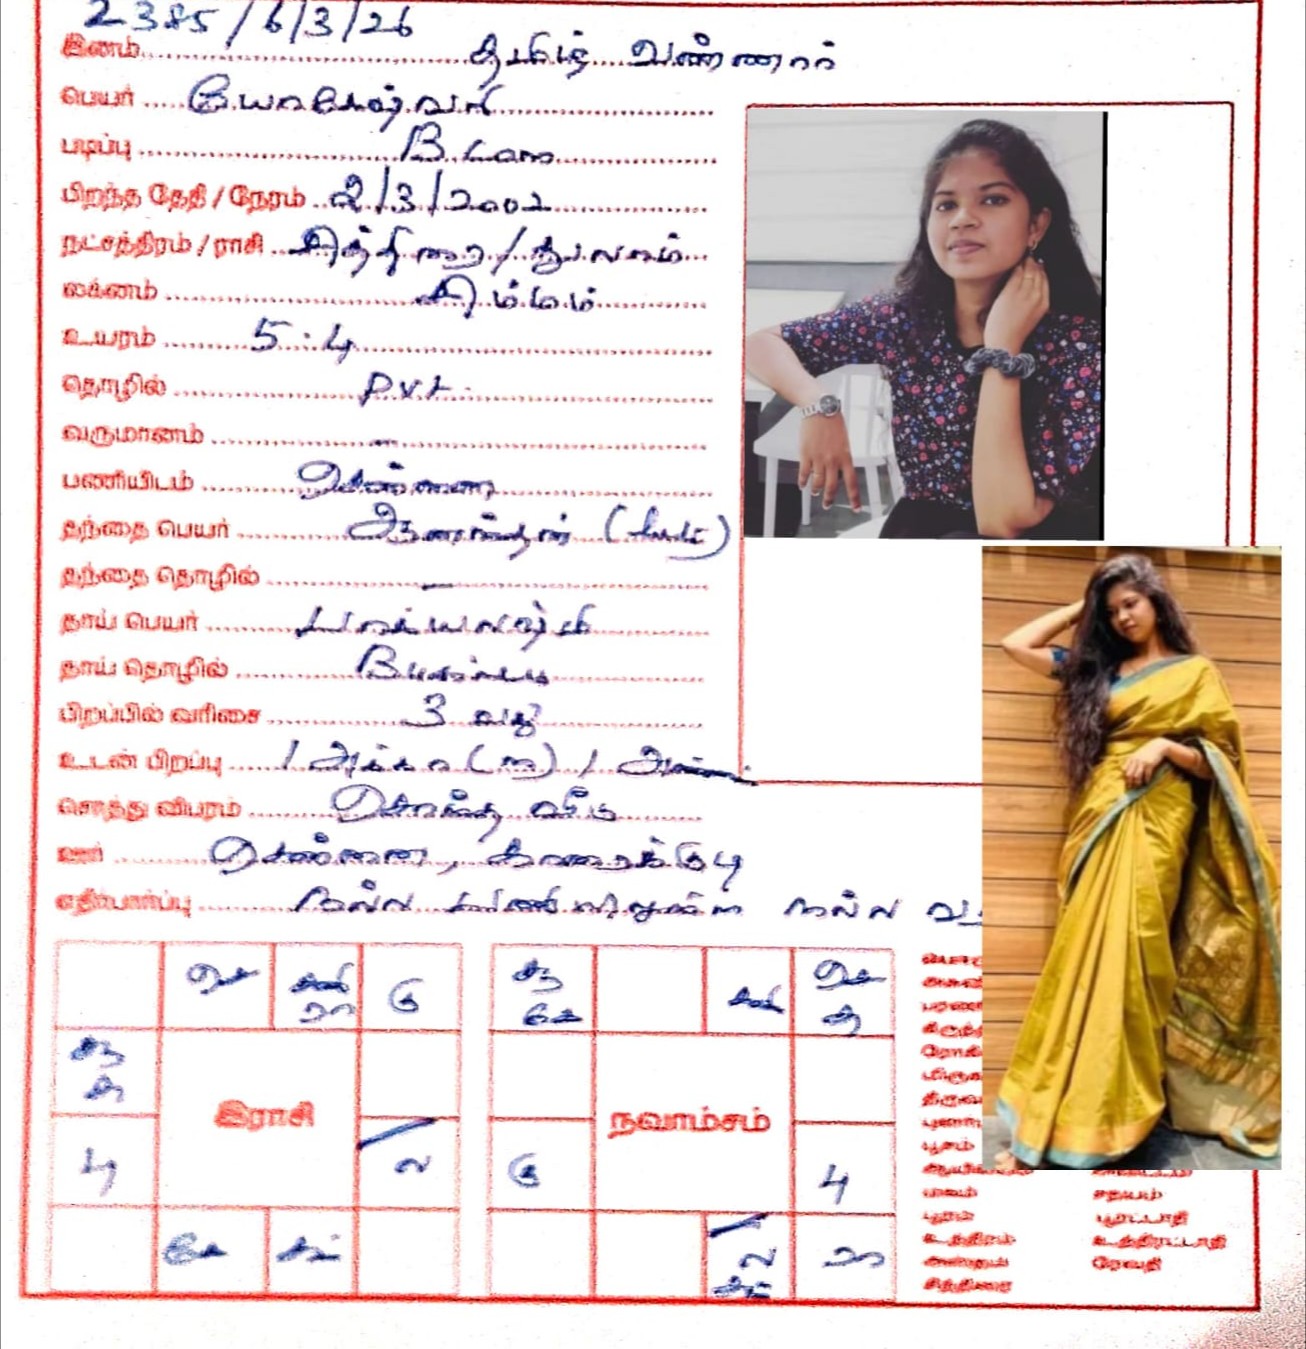 2385/6/3/26
இனம் தமிழ் வண்ணார்
பெயர் யோகேஷ்வரி
படிப்பு B.Com
பிறந்த தேதி / நேரம் 2/3/2002
நட்சத்திரம் / ராசி சித்திரை / துலாம்
லக்னம் சிம்மம்
உயரம் 5.4
தொழில் Pvt.
வருமானம் –
பணியிடம் சென்னை
தந்தை பெயர் ஆனந்தன்
தந்தை தொழில் –
தாய் பெயர் பாக்யலஷ்மி
தாய் தொழில்
பிறப்பில் வரிசை 3 வது
உடன் பிறப்பு 1 அக்கா (ம) 1 அண்ணன்
சொத்து விபரம் சொந்த வீடு
ஊர் சென்னை, காரைக்குடி
எதிர்பார்ப்பு நல்ல பணியிலுள்ள நல்ல
செ சனி ரா கு
சூ சு
பு
ல
கே சந்
இராசி
சூ கே சனி செ சு
கு பு
ல சந் ரா
நவாம்சம்
மகம் சதயம்
பூரம் பூரட்டாதி
உத்திரம் உத்திரட்டாதி
அஸ்தம் ரேவதி
சித்திரை